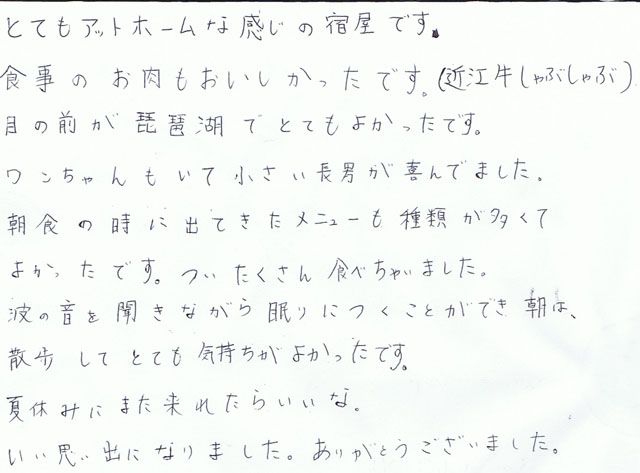 とてもアットホームな感じの宿屋です。
食事のお肉もおいしかったです。(近江牛しゃぶしゃぶ)
目の前が琵琶湖でとてもよかったです。
ワンちゃんもいて小さい長男が喜んでました。
朝食の時に出てきたメニューも種類が多くて
よかったです。ついたくさん食べちゃいました。
波の音を聞きながら眠りにつくことができ朝は、
散歩してとても気持ちがよかったです。
夏休みにまた来れたらいいな。
いい思い出になりました。ありがとうございました。